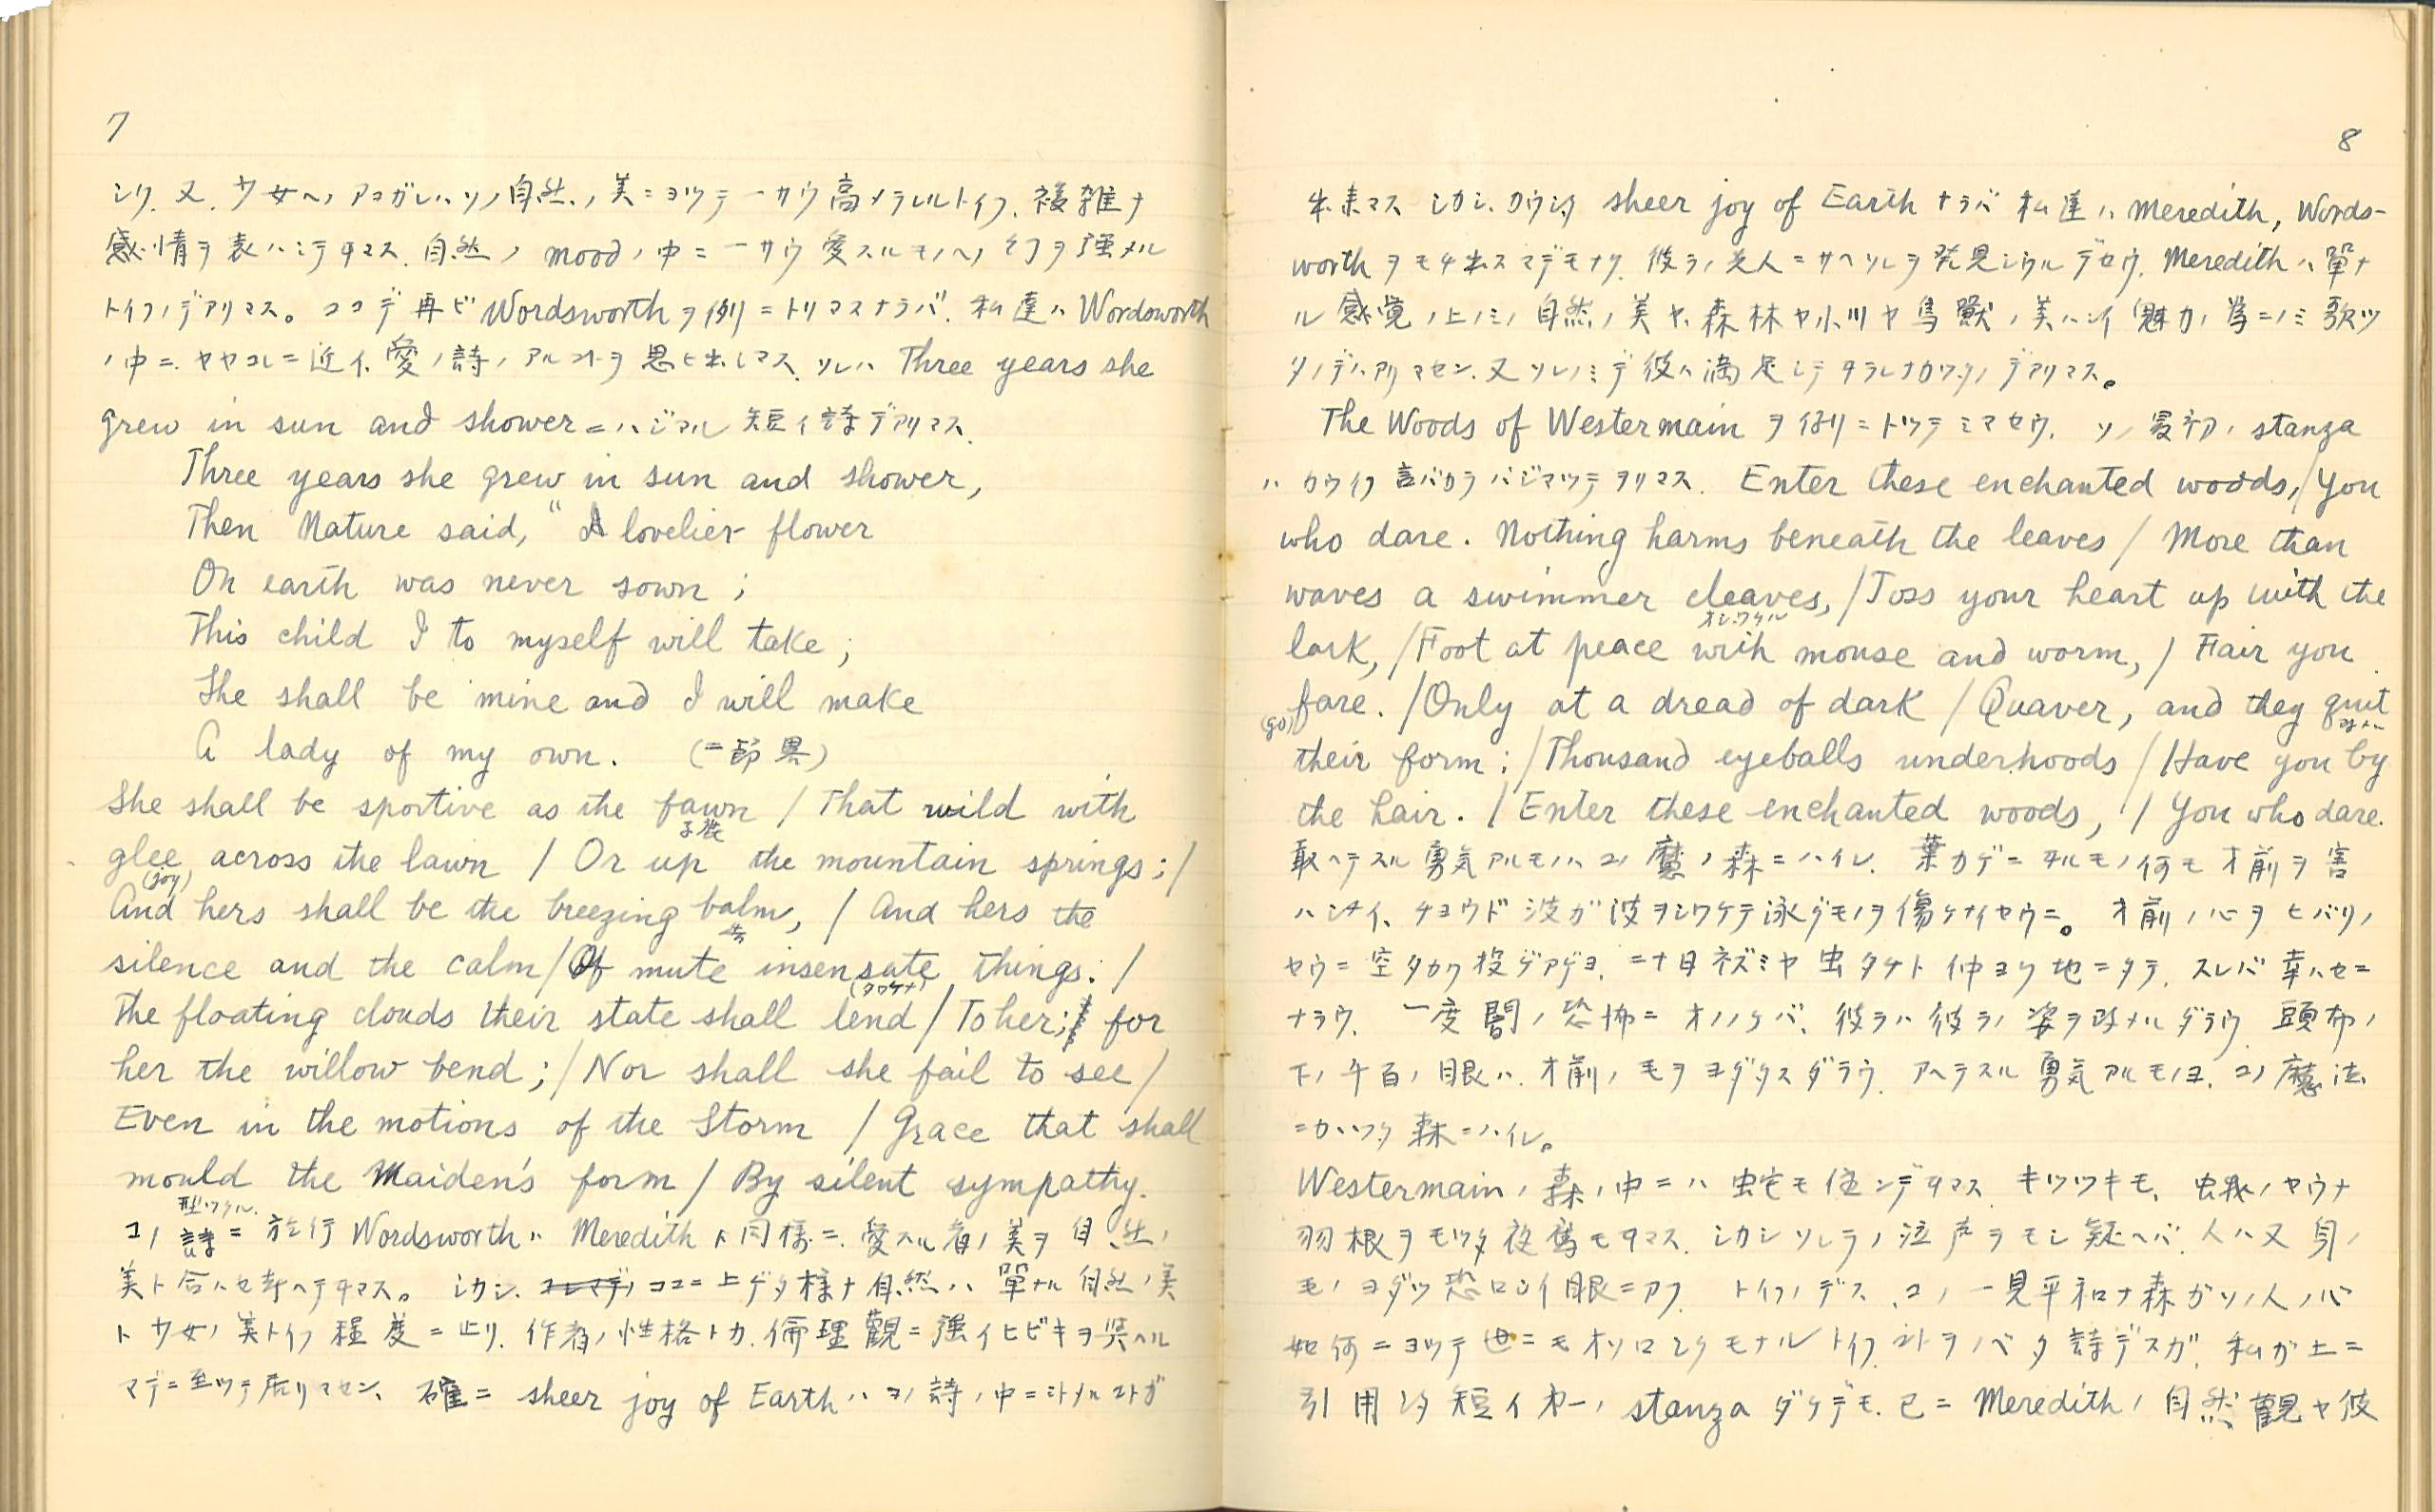 7
シ,又,少女ヘノアコガレハソノ自然ノ美ニヨツテ一サウ高メラレルトイフ、複雑ナ
感情ヲ表ハシテヰマス、自然ノ mood ノ中ニ一サウ愛スルモノヘノ幻ヲ強メル
トイフノデアリマス。ココデ再ビ Wordsworth ヲ例ニトリマスナラバ、私達ハ Wordsworth
ノ中ニ、ヤヤコレニ近イ、愛ノ詩ノアルコトヲ思ヒ出シマス、ソレハ Three years she
grew in sun and shower ニハジマル 短イ詩デアリマス、
Three years she grew in sun and shower,
Then Nature said, "A lovelier flower
On earth was never sown ;
This child I to myself will take ;
She shall be mine and I will make
A lady of my own. (二節畧)
She shall be sportive as the fawn / That wild with
子鹿
glee across the lawn / Or up the mountain springs ; /
(joy)
And hers shall be the breezing balm, / And hers the
silence and the calm / Of mute insensate things. /
(タワケナ)
The floating clouds their state shall lend / To her ; for
her the willow bend ; / Nor shall she fail to see /
Even in the motions of the Storm / Grace that shall
mould the Maiden's form / By silent sympathy.
型ツクル.
コノ詩ニ於テ Wordsworth ハ Meredith ト同様ニ、愛スル者ノ美ヲ自然ノ
美ト合ハセ考ヘテヰマス。シカシ、コレマデノ ココニ上ゲタ様ナ自然ハ、單ナル自然ノ美
ト少女ノ美トイフ程度ニ止リ、作者ノ性格トカ、倫理觀ニ強イヒビキヲ與ヘル
マデニ至ツテ居リマセン、確ニ sheer joy of Earth ハコノ詩ノ中ニミトメルコトガ
8
出来マス シカシ、カウシタ sheer joy of Earth ナラバ 私達ハ Meredith, Words-
worth ヲモチ出スマデモナク、彼ラノ先人ニサヘソレヲ発見シウルデセウ、Meredith ハ單ナ
ル感覚ノ上ノミノ自然ノ美ヤ、森林ヤ小川ヤ鳥獸ノ美ハシイ魅力ノ為ニノミ歌ツ
タノデハアリマセン、又ソレノミデ彼ハ満足シテヰラレナカツタノデアリマス。
The Woods of Westermain ヲ例ニトツテミマセウ、ソノ最初ノ stanza
ハカウイフ言バカラハジマツテヲリマス. Enter these enchanted woods, / You
who dare. Nothing harms beneath the leaves / More than
waves a swimmer cleaves, / Toss your heart up with the
オシワケル
lark, / Foot at peace with mouse and worm, / Fair you
fare. / Only at a dread of dark / Quaver, and they quit
(go)
their form ; / Thousand eyeballs underhoods / Have you by
the hair. / Enter these enchanted woods, / You who dare.
敢ヘテスル勇気アルモノハコノ魔ノ森ニハイレ、葉カゲニヰルモノ何モオ前ヲ害
ハシナイ、チヨウド波ガ波ヲシワケテ泳グモノヲ傷ケナイヤウニ。オ前ノ心ヲヒバリノ
ヤウニ空タカク投ゲアゲヨ、二十日ネズミヤ虫タチト仲ヨク地ニタテ、スレバ幸ハセニ
ナラウ、一度闇ノ恐怖ニオノノケバ、彼ラハ彼ラノ姿ヲ改メルダラウ、頭布ノ
下ノ千百ノ眼ハ、オ前ノ毛ヲヨダタスダラウ、アヘテスル勇気アルモノヨ、コノ魔法
ニカカツタ森ニハイレ。
Westermain ノ森ノ中ニハ蛇モ住ンデヰマス、キツツキモ、虫我ノヤウナ
羽根ヲモツタ夜鶯モヰマス、シカシソレラノ泣声ヲモシ疑ヘバ、人ハ又身ノ
毛ノヨダツ恐ロシイ眼ニアフ、トイフノデス、コノ一見平和ナ森ガソノ人ノ心
如何ニヨツテ世ニモオソロシクモナルトイフコトヲノベタ詩デスガ、私ガ上ニ
引用シタ短イ才一ノ stanza ダケデモ、已ニ Meredith ノ自然觀ヤ彼